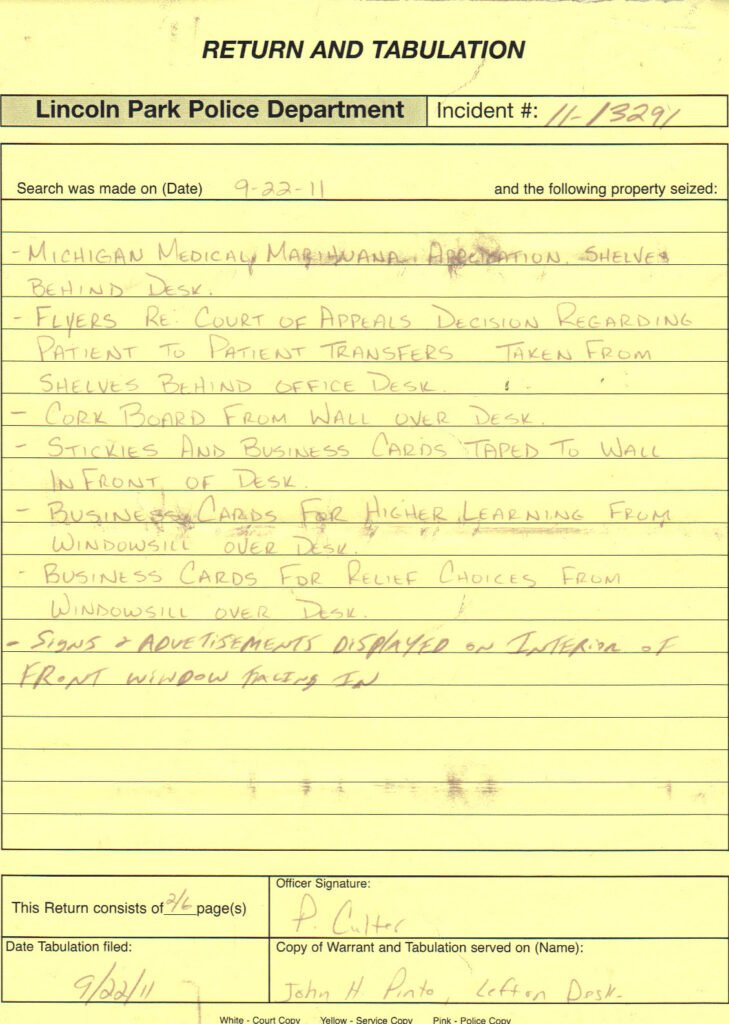 RETURN AND TABULATION
Lincoln Park Police Department Incident #: 11-13291
Search was made on (Date) 9-22-11 and the following property seized:
- MICHIGAN MEDICAL MARIHUANA APPLICATION. SHELVES
BEHIND DESK.
- FLYERS RE: COURT OF APPEALS DECISION REGARDING
PATIENT TO PATIENT TRANSFERS TAKEN FROM
SHELVES BEHIND OFFICE DESK.
- CORK BOARD FROM WALL OVER DESK.
- STICKIES AND BUSINESS CARDS TAPED TO WALL
IN FRONT OF DESK.
- BUSINESS CARDS FOR HIGHER LEARNING FROM
WINDOWSILL OVER DESK.
- BUSINESS CARDS FOR RELIEF CHOICES FROM
WINDOWSILL OVER DESK.
- SIGNS & ADVETISEMENTS DISPLAYED ON INTERIOR OF
FRONT WINDOW FACING IN
This Return consists of 2/6 page(s)
Officer Signature:
P. Culter
Date Tabulation filed:
9/22/11
Copy of Warrant and Tabulation served on (Name):
John H Pinto, Left on Desk.
White - Court Copy Yellow - Service Copy Pink - Police Copy